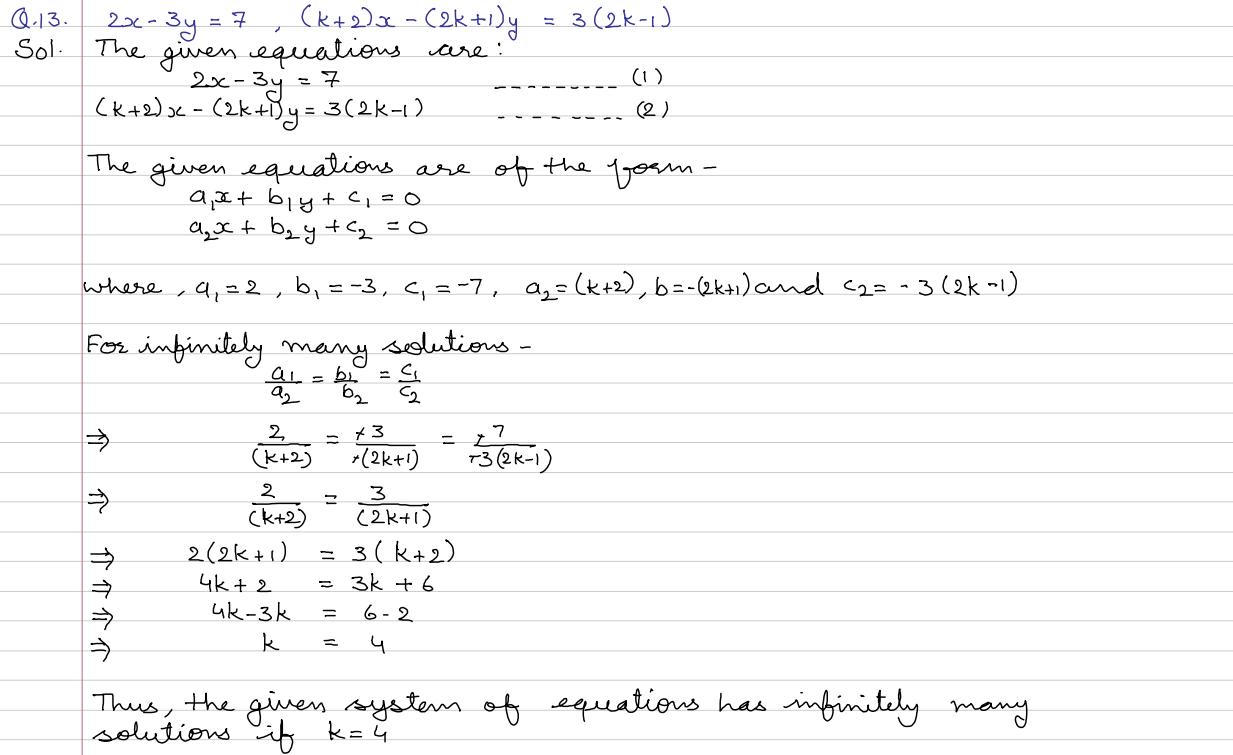 Q.13. 2x - 3y = 7 , (k+2)x - (2k+1)y = 3(2k-1)
Sol. The given equations are:
2x - 3y = 7 --------- (1)
(k+2)x - (2k+1)y = 3(2k-1) -------- (2)
The given equations are of the form -
a₁x + b₁y + c₁ = 0
a₂x + b₂y + c₂ = 0
where , a₁ = 2 , b₁ = -3, c₁ = -7, a₂ = (k+2), b = -(2k+1) and c₂ = - 3(2k-1)
For infinitely many solutions -
a₁/a₂ = b₁/b₂ = c₁/c₂
⇒ 2/(k+2) = -3/-(2k+1) = -7/-3(2k-1)
⇒ 2/(k+2) = 3/(2k+1)
⇒ 2(2k+1) = 3(k+2)
⇒ 4k + 2 = 3k + 6
⇒ 4k - 3k = 6 - 2
⇒ k = 4
Thus, the given system of equations has infinitely many
solutions if k = 4